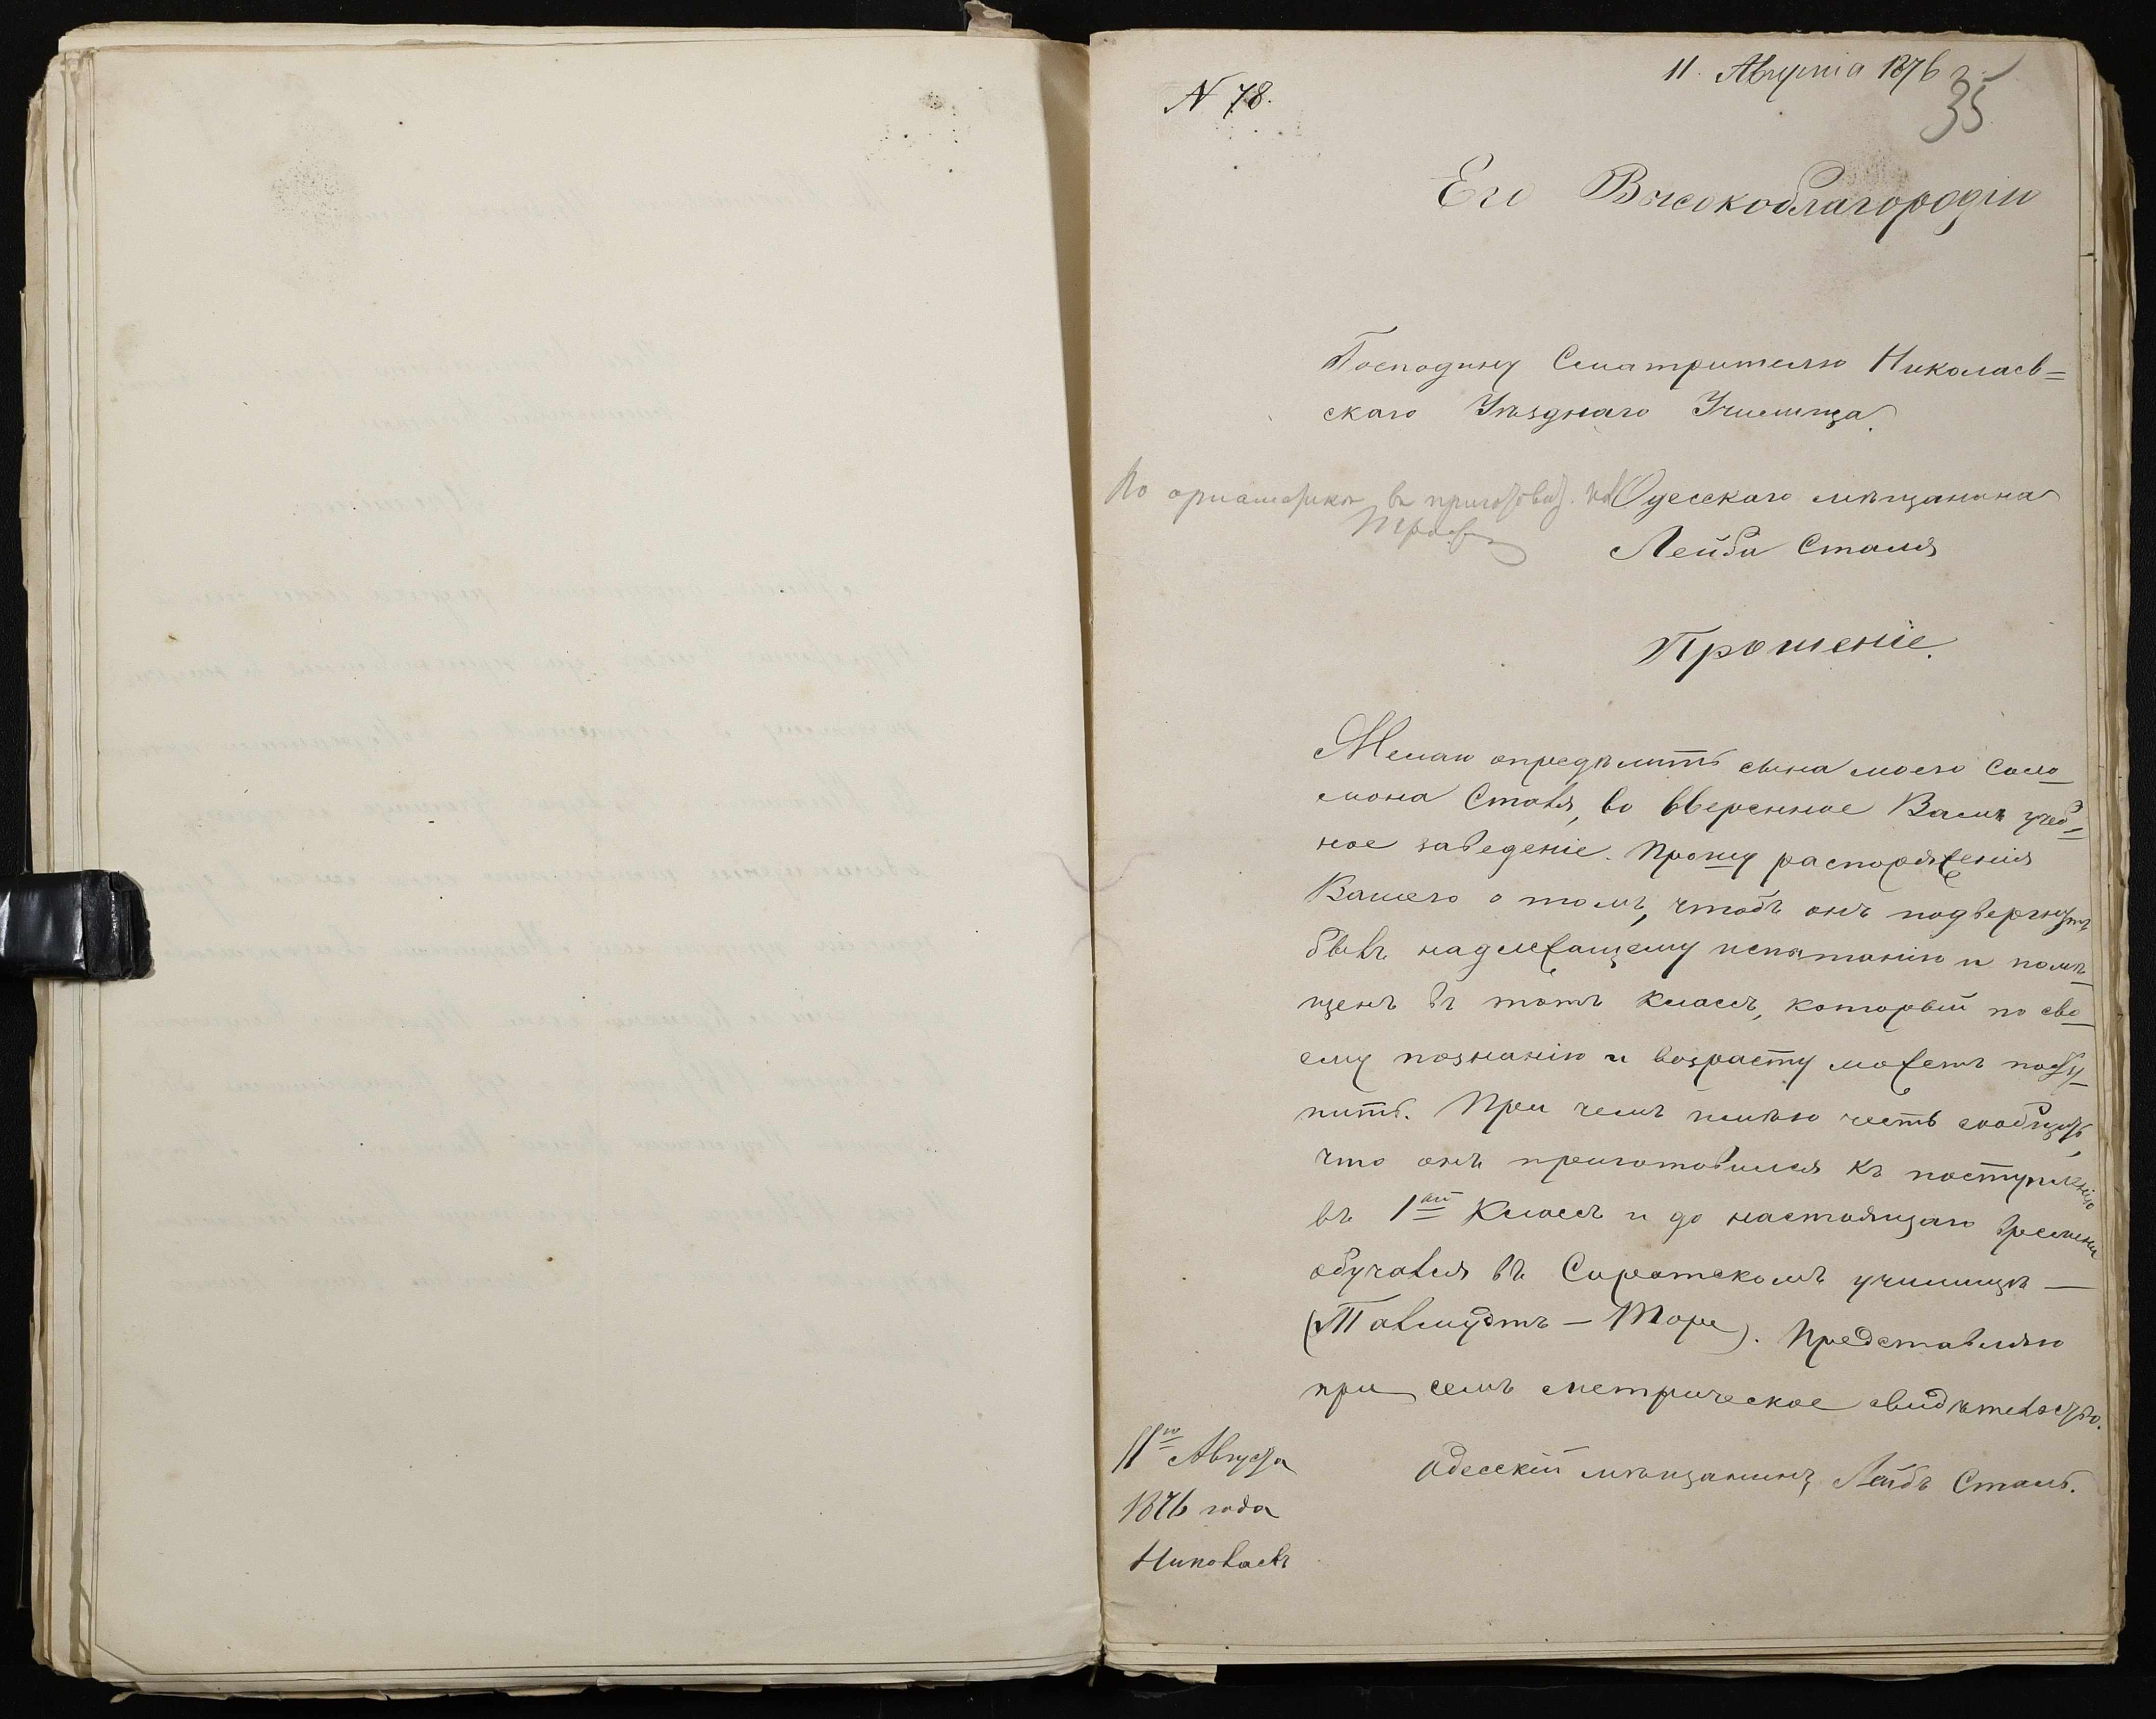 N 78.
11. Августа 1876 г.
35
Его Высокоблагородію
Господину Смотрителю Николаев=
скаго Уѣзднаго Училища.
По ариѳметикѣ въ приготовит.
Одесскаго мѣщанина
Лейба Сталя
Прошеніе.
Желаю опредѣлить сына моего Соло-
мона Сталя, во ввѣренное Вамъ учеб=
ное заведеніе. Прошу распоряженія
Вашего о томъ, чтобъ онъ подвергнутъ
бывъ надлежащему испытанію и помѣ-
щенъ въ тотъ классъ, который по сво-
ему познанію и возрасту можетъ посту-
пить. При чемъ имѣю честь сообщить,
что онъ приготовился къ поступленію
въ 1ый Классъ и до настоящаго времени
обучался въ Сиротскомъ училищѣ —
(Талмудтъ — Торе). Представляю
при семъ метрическое свидѣтельство.
11го Августа
1876 года
Николаевъ
Одесскій мѣщанинъ Лейбъ Сталь.